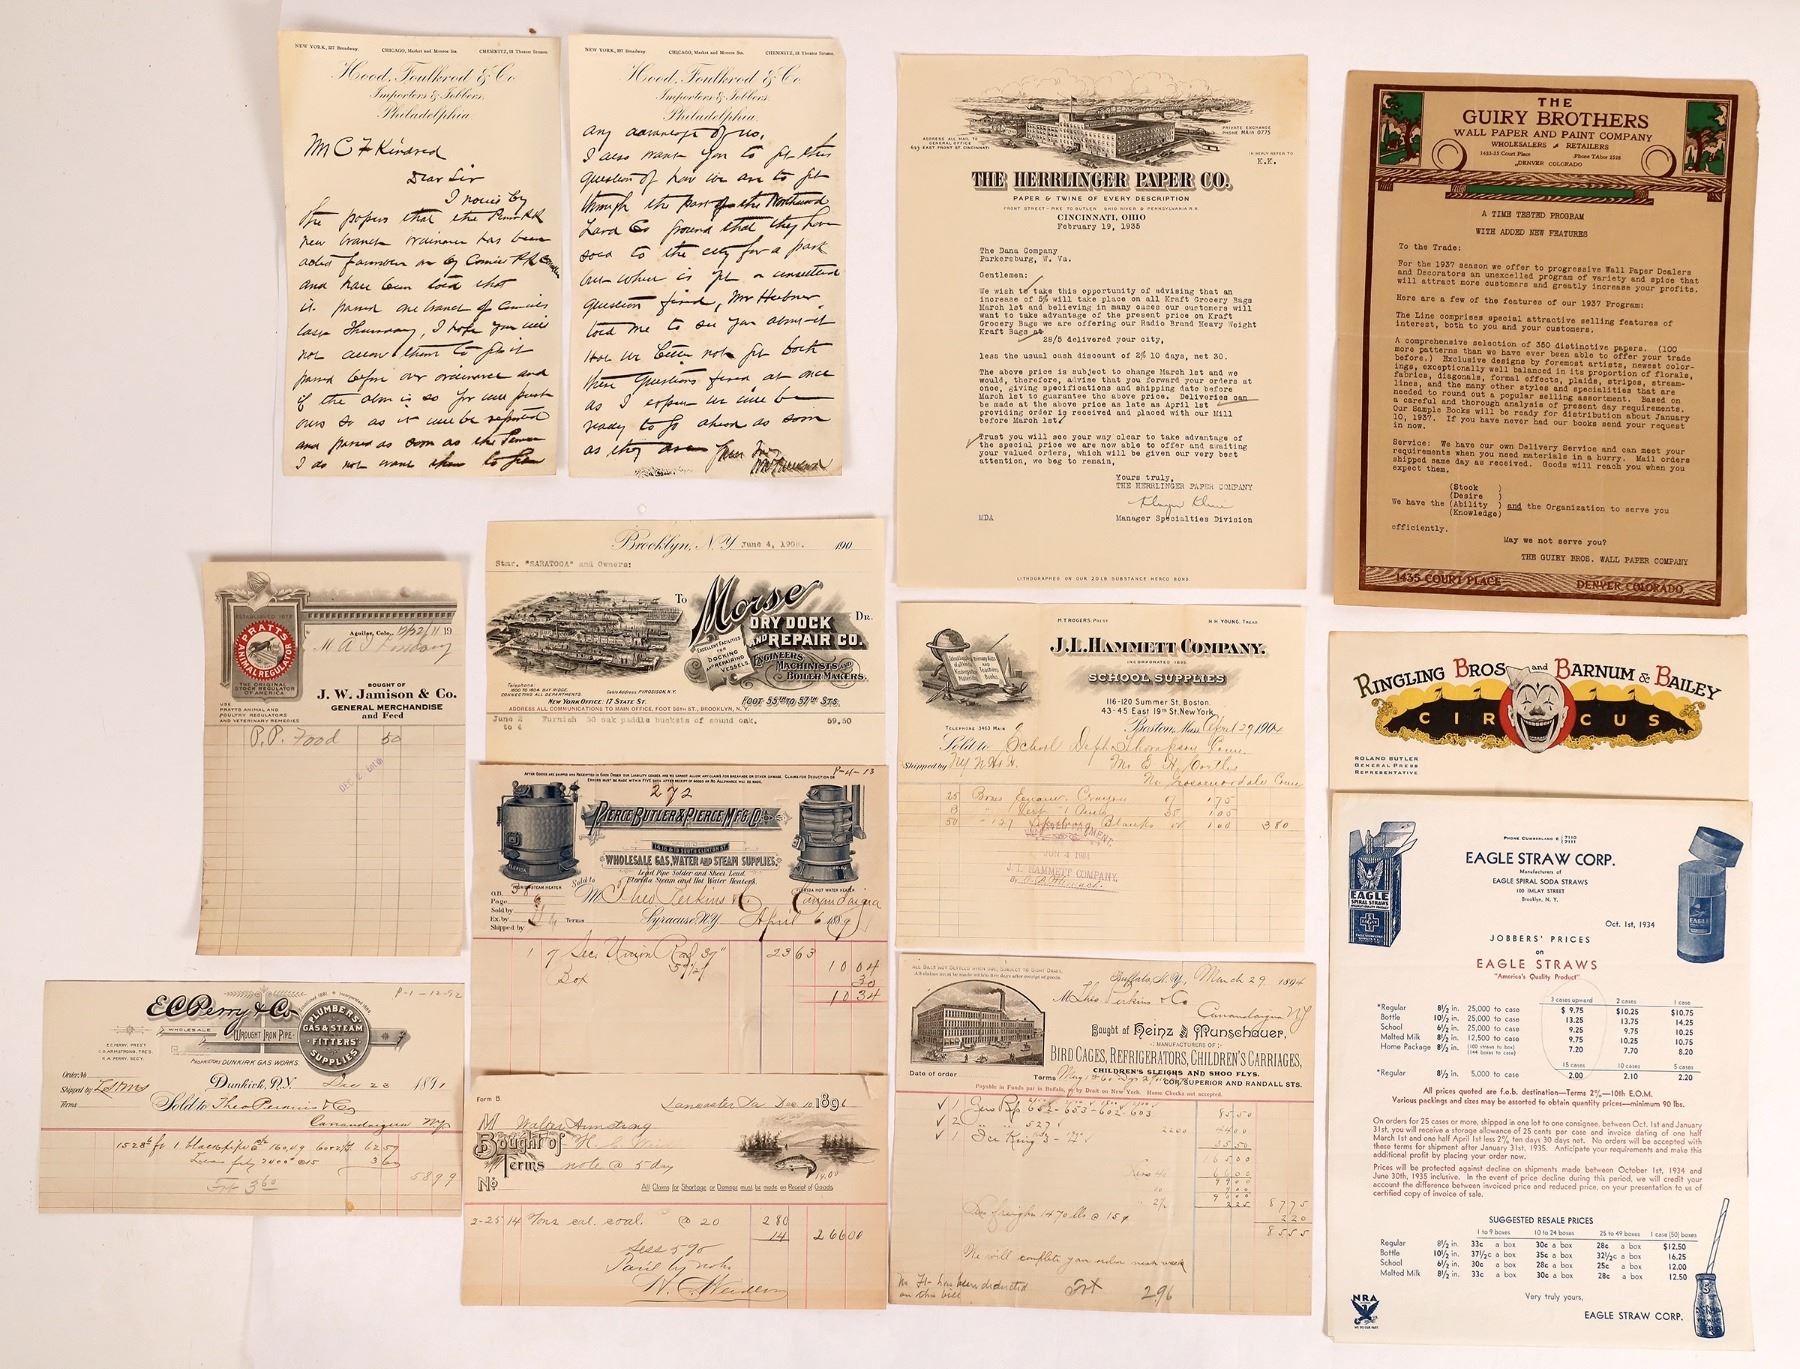 NEW YORK, 327 Broadway. CHICAGO, Market and Monroe Sts. CHEMNITZ, 12 Theater Strasse.
Hood, Foulkrod & Co.
Importers & Jobbers,
Philadelphia
Mr C F Kindred
Dear Sir
I notice by
the papers that the Penn RR
new branch ordinance has been
and have been told that
I hope you will
not allow them to get it
passed before our ordinance and
if the
and passed as soon as the
I do not want them to
NEW YORK, 327 Broadway. CHICAGO, Market and Monroe Sts. CHEMNITZ, 12 Theater Strasse.
Hood, Foulkrod & Co.
Importers & Jobbers,
Philadelphia.
any advantage of us.
I also want you to get this
question of how we are to get
through the part of the Northwood
Land Co ground that they have
sold to the city for a park
question fixed, Mr
told me to see you about it
Had we better not get both
these questions fixed at once
as I expect we will be
ready to go ahead as soon
as they are
ADDRESS ALL MAIL TO
GENERAL OFFICE
EAST FRONT ST. CINCINNATI
PRIVATE EXCHANGE
PHONE MAIN 0775
IN REPLY REFER TO
K.K.
THE HERRLINGER PAPER CO.
PAPER & TWINE OF EVERY DESCRIPTION
FRONT STREET - PIKE TO BUTLER OHIO RIVER & PENNSYLVANIA R.R.
CINCINNATI, OHIO
February 19, 1935
The Dana Company
Parkersburg, W. Va.
Gentlemen:
We wish to take this opportunity of advising that an
increase of 5% will take place on all Kraft Grocery Bags
March 1st and believing in many cases our customers will
want to take advantage of the present price on Kraft
Grocery Bags we are offering our Radio Brand Heavy Weight
Kraft Bags at
28/5 delivered your city,
less the usual cash discount of 2% 10 days, net 30.
The above price is subject to change March 1st and we
would, therefore, advise that you forward your orders at
once, giving specifications and shipping date before
March 1st to guarantee the above price. Deliveries can
be made at the above price as late as April 1st
providing order is received and placed with our Mill
before March 1st.
Trust you will see your way clear to take advantage of
the special price we are now able to offer and awaiting
your valued orders, which will be given our very best
attention, we beg to remain,
Yours truly,
THE HERRLINGER PAPER COMPANY
MDA Manager Specialties Division
LITHOGRAPHED ON OUR 20LB SUBSTANCE HERCO BOND.
THE
GUIRY BROTHERS
WALL PAPER AND PAINT COMPANY
WHOLESALERS RETAILERS
1433-35 Court Place Phone TAbor 2528
DENVER COLORADO
A TIME TESTED PROGRAM
WITH ADDED NEW FEATURES
To the Trade:
For the 1937 season we offer to progressive Wall Paper Dealers
and Decorators an unexcelled program of variety and spice that
will attract more customers and greatly increase your profits.
Here are a few of the features of our 1937 Program:
The Line comprises special attractive selling features of
interest, both to you and your customers.
A comprehensive selection of 350 distinctive papers. (100
more patterns than we have ever been able to offer your trade
before.) Exclusive designs by foremost artists, newest color-
ings, exceptionally well balanced in its proportion of florals,
fabrics, diagonals, formal effects, plaids, stripes, stream-
lines, and the many other styles and specialties that are
needed to round out a popular selling assortment. Based on
a careful and thorough analysis of present day requirements.
Our Sample Books will be ready for distribution about January
10, 1937. If you have never had our books send your request
in now.
Service: We have our own Delivery Service and can meet your
requirements when you need materials in a hurry. Mail orders
shipped same day as received. Goods will reach you when you
expect them.
(Stock )
(Desire )
We have the (Ability ) and the Organization to serve you
(Knowledge)
efficiently.
May we not serve you?
THE GUIRY BROS. WALL PAPER COMPANY
1435 COURT PLACE DENVER COLORADO
ESTABLISHED 1872
PRATTS
ANIMAL REGULATOR
THE ORIGINAL
STOCK REGULATOR
OF AMERICA
USE
PRATTS ANIMAL AND
POULTRY REGULATORS
AND VETERINARY REMEDIES
Aguilar, Colo., 19
BOUGHT OF
J. W. Jamison & Co.
GENERAL MERCHANDISE
and Feed
P.P. Food 50
Brooklyn, N.Y. June 4, 1908. 190
Stmr. "SARATOGA" and Owners:
To Morse Dr.
DRY DOCK
AND REPAIR CO.
EXCELLENT FACILITIES
FOR DOCKING
AND REPAIRING
VESSELS.
ENGINEERS
MACHINISTS AND
BOILER MAKERS.
Telephone:
CONNECTING ALL DEPARTMENTS.
NEW YORK OFFICE: 17 STATE ST.
FOOT 55TH TO 57TH STS.
ADDRESS ALL COMMUNICATIONS TO MAIN OFFICE, FOOT 56TH ST., BROOKLYN, N.Y.
June 2 Furnish 30 oak paddle buckets of sound oak. 59.50
to 4
P-4-13
272
PIERCE, BUTLER & PIERCE M'F'G CO.
14 16 & 18 SOUTH CLINTON ST.
WHOLESALE GAS, WATER AND STEAM SUPPLIES,
Lead Pipe Solder and Sheet Lead.
Florida Steam and Hot Water Heaters.
FLORIDA STEAM HEATER
FLORIDA HOT WATER HEATER
Sold to M Theo Perkins & Co Canandaigua
O.B.
Page
Sold by
Ex. by
Shipped by
Terms
Syracuse, N.Y. April 6 189
1 7 Sec Union Rad 37" 23 63
10 04
Box 30
10 34
M.T. ROGERS, PREST H.H. YOUNG, TREAS
J.L. HAMMETT COMPANY.
INCORPORATED 1895
SCHOOL SUPPLIES
116-120 Summer St. Boston.
43-45 East 19th St. New York.
TELEPHONE 3463 MAIN
Boston, Mass. April 29 1904
Sold to School Dept Thompson Conn.
Shipped by
No Grosvenordale Conn
25 Boxes Crayons 07 1 75
3 35 1 05
50 Blanks 02 1 00 3 80
JUN 4 1904
J. L. HAMMETT COMPANY.
RINGLING BROS and BARNUM & BAILEY
CIRCUS
ROLAND BUTLER
GENERAL PRESS
REPRESENTATIVE
PHONE CUMBERLAND 6 7110 7111
EAGLE STRAW CORP.
Manufacturers of
EAGLE SPIRAL SODA STRAWS
100 IMLAY STREET
Brooklyn, N. Y.
EAGLE
SPIRAL STRAWS
Oct. 1st, 1934
JOBBERS' PRICES
on
EAGLE STRAWS
"America's Quality Product"
3 cases upward 2 cases 1 case
*Regular 8½ in. 25,000 to case $ 9.75 $10.25 $10.75
Bottle 10½ in. 25,000 to case 13.25 13.75 14.25
School 6½ in. 25,000 to case 9.25 9.75 10.25
Malted Milk 8½ in. 12,500 to case 9.75 10.25 10.75
Home Package 8½ in. (100 straws to box) (144 boxes to case) 7.20 7.70 8.20
15 cases 10 cases 5 cases
*Regular 8½ in. 5,000 to case 2.00 2.10 2.20
All prices quoted are f.o.b. destination—Terms 2%—10th E.O.M.
Various packings and sizes may be assorted to obtain quantity prices—minimum 90 lbs.
On orders for 25 cases or more, shipped in one lot to one consignee, between Oct. 1st and January
31st, you will receive a storage allowance of 25 cents per case and invoice dating of one half
March 1st and one half April 1st less 2% ten days 30 days net. No orders will be accepted with
these terms for shipment after January 31st, 1935. Anticipate your requirements and make this
additional profit by placing your order now.
Prices will be protected against decline on shipments made between October 1st, 1934 and
June 30th, 1935 inclusive. In the event of price decline during this period, we will credit your
account the difference between invoiced price and reduced price, on your presentation to us of
certified copy of invoice of sale.
SUGGESTED RESALE PRICES
1 to 9 boxes 10 to 24 boxes 25 to 49 boxes 1 case (50) boxes
Regular 8½ in. 33c a box 30c a box 28c a box $12.50
Bottle 10½ in. 37½c a box 35c a box 32½c a box 16.25
School 6½ in. 30c a box 28c a box 25c a box 12.00
Malted Milk 8½ in. 33c a box 30c a box 28c a box 12.50
Very truly yours,
EAGLE STRAW CORP.
NRA
P-1-12-92
E.C. Perry & Co
WHOLESALE
WROUGHT IRON PIPE
PLUMBERS'
GAS & STEAM
FITTERS'
SUPPLIES
E.C. PERRY, PRES'T
C.D. ARMSTRONG, TRE'S.
R.A. PERRY, SEC'Y.
PROPRIETORS DUNKIRK GAS WORKS.
Order No.
Shipped by
Terms
Dunkirk, N.Y. Dec 23 189
Sold to Theo Perkins & Co
Canandaigua N.Y.
62 59
3 60
58 99
Frt 3 60
Form B.
Lancaster Pa Dec 10 1896
M Walter Armstrong
Bought of
Terms note @ 5 day
No.
All Claims for Shortage or Damage must be made on Receipt of Goods.
2-25 14 Tons coal. @ 20 280
14 266 00
Less 5%
Paid by note
Buffalo, N.Y., March 29 1894
M Theo Perkins & Co
Canandaigua NY
Bought of Heinz & Munschauer,
MANUFACTURERS OF
BIRD CAGES, REFRIGERATORS, CHILDREN'S CARRIAGES,
CHILDREN'S SLEIGHS AND SHOO FLYS.
COR. SUPERIOR AND RANDALL STS.
Date of order
Terms
Payable in Funds par in Buffalo, or by Draft on New York. Home Checks not accepted.
652 - 653 - 602 603 85 50
2 527 22 00 44 00
35 50
165 00
66 00
99 00
9 00
90 00
2 25
87 75
Des freight 1470 lbs @ 15¢ 2 20
85 55
We will complete your order next week
Frt 2 96
has been deducted
on this bill